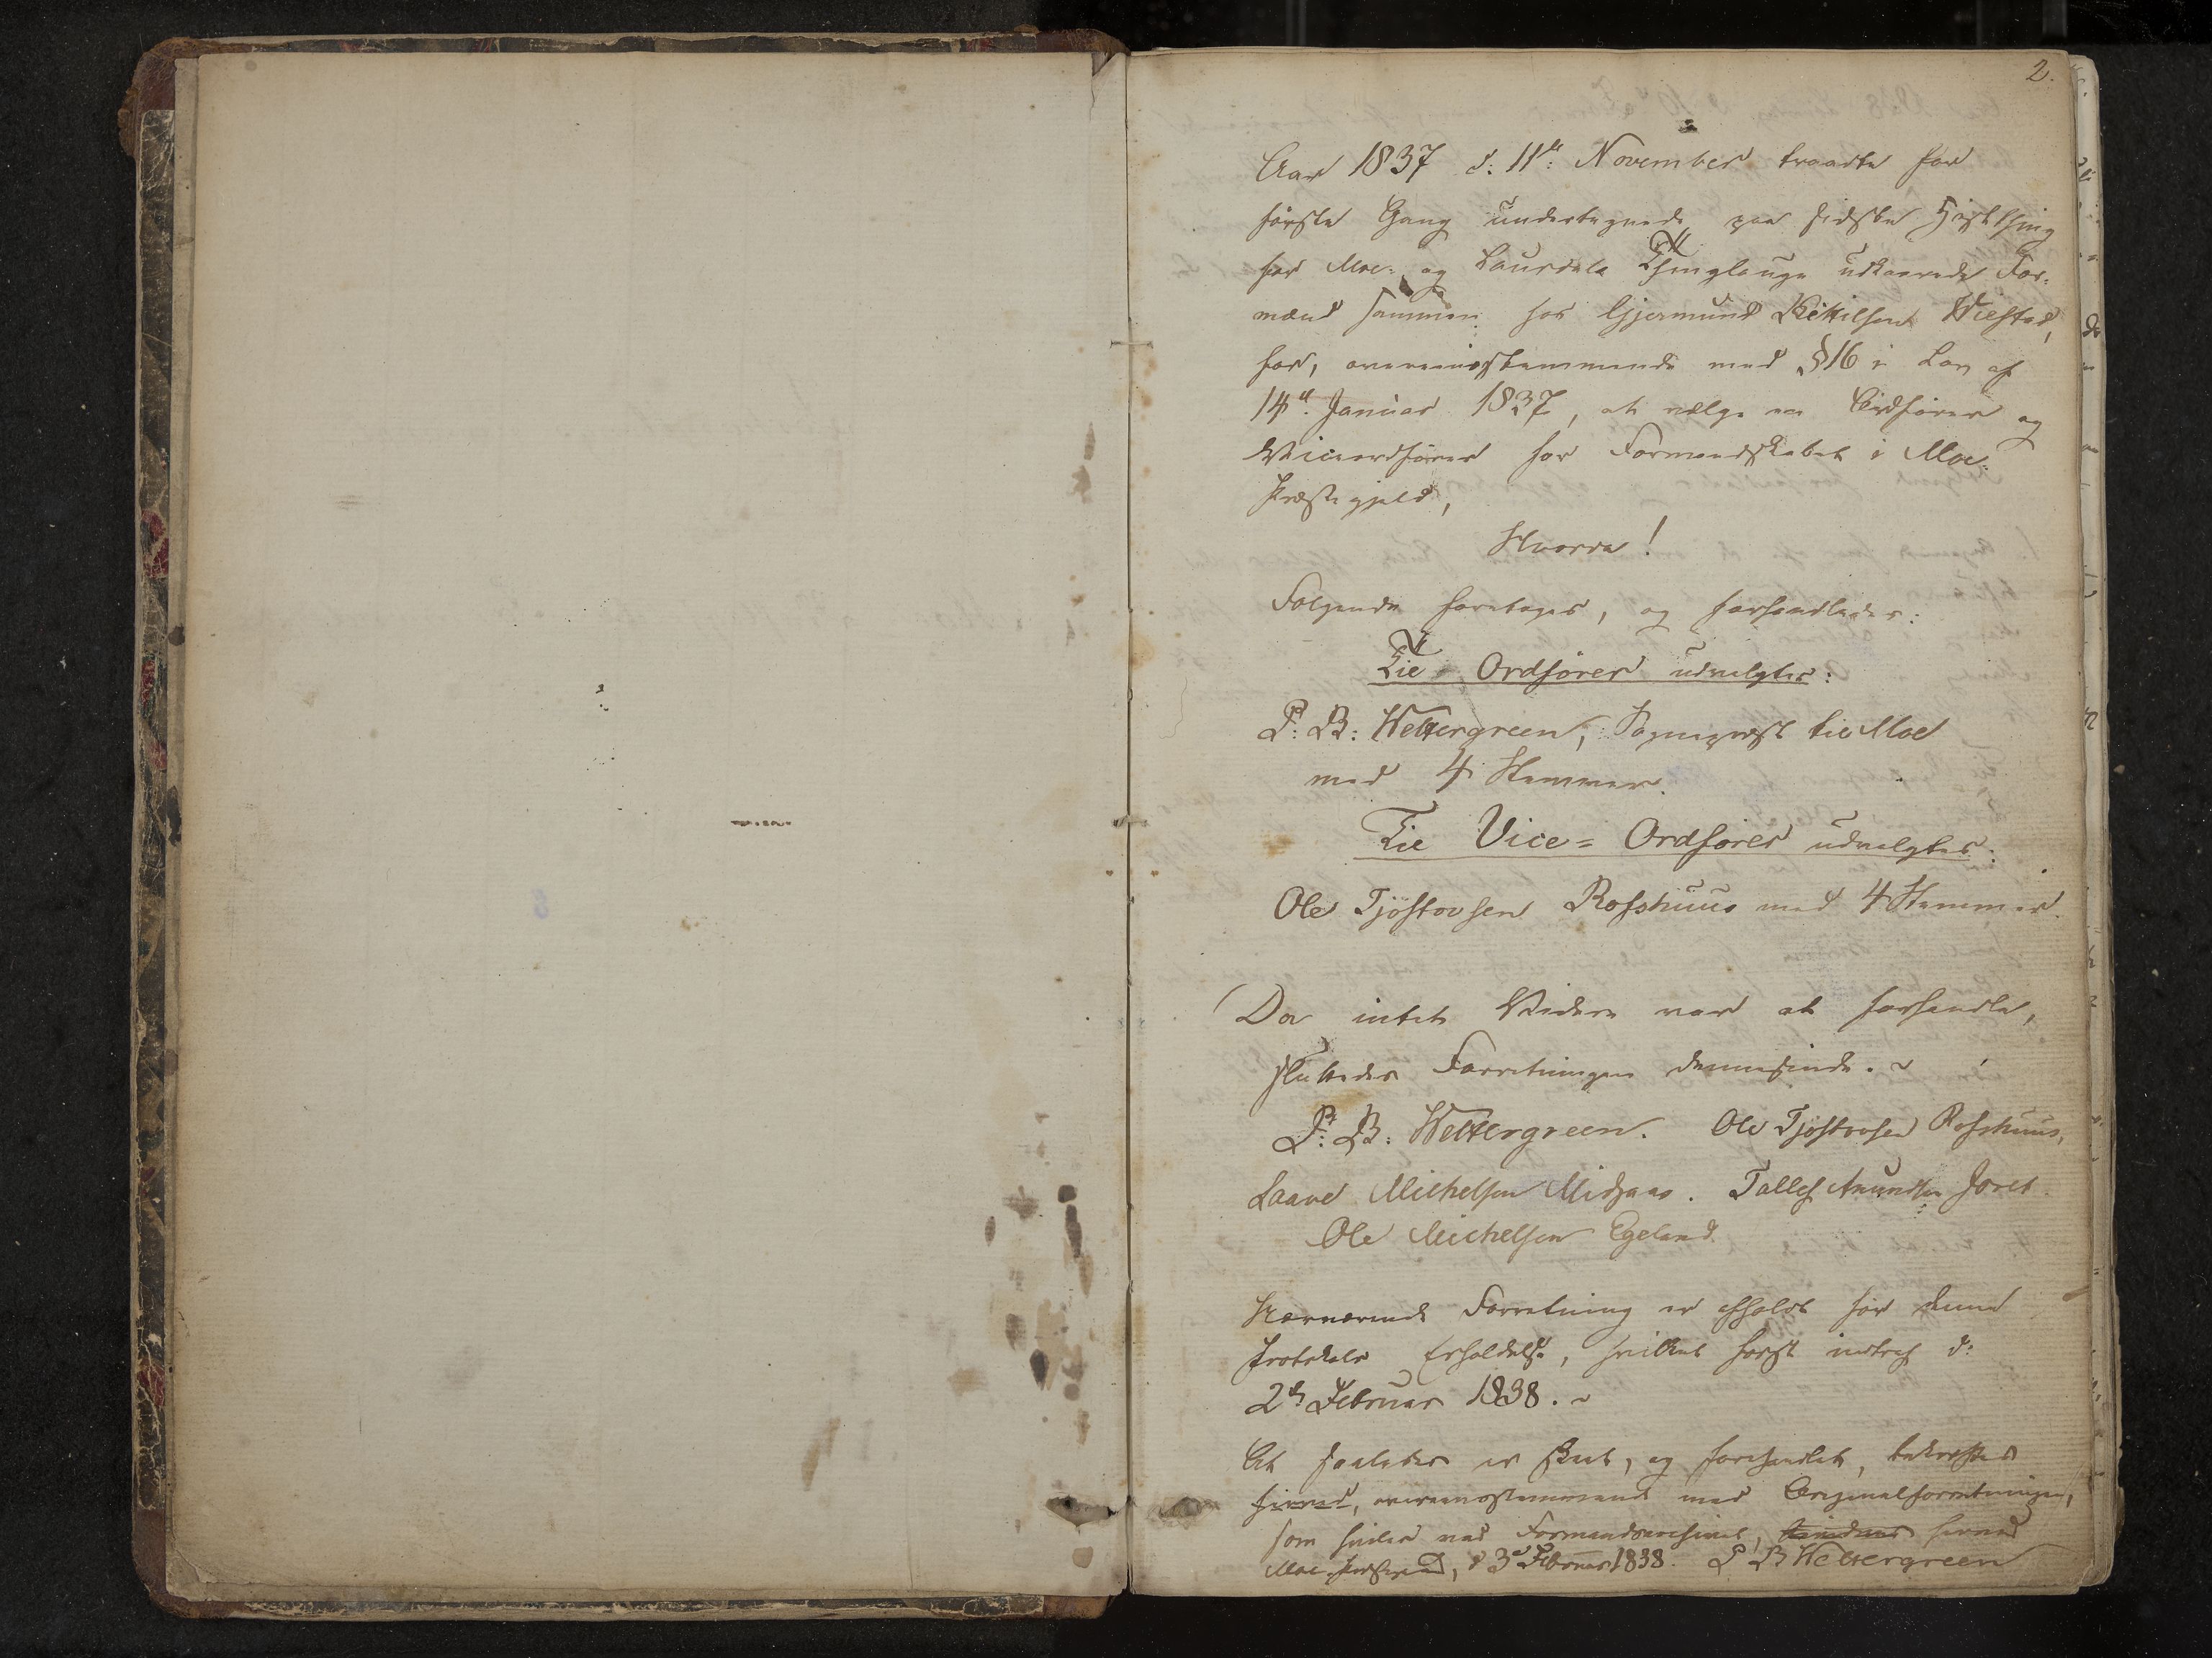 2.
Aar 1837 d: 11te November traadte for
første Gang undertegnede paa sidste Høstthing
for Moe- og Laurdals Thinglauge udkaarede For-
mænd sammen hos Gjermund Kittilsen Wiestad,
for, overeensstemmende med §16 i Lov af
14de Januar 1837, at vælge en Ordfører og
Viceordfører for Formandskabet i Moe-
Præstegjeld,
Hvorda!
Følgende foretoges, og forhandledes:
Til Ordfører udvalgtes:
P: B: Wettergreen, Sognepræst til Moe
med 4 Stemmer.
Til Vice= Ordfører udvalgtes:
Ole Tjøstovsen Rosshuus med 4 Stemmer.
Da intet Videre var at forhandle,
sluttedes Forretningen dennesinde.
P: B: Wettergreen. Ole Tjøstovsen Rosshuus,
Laave Michelsen Midgaas. Tallef Anundsen
Ole Michelsen Egeland.
Nærværende Forretning er afholdt før denne
Protokols Erholdelse, hvilket først indtraf d:
2den Februar 1838.
At saaledes er skeet, og forhandlet, bekræftes
herved, overeensstemmende med Originalforretningen,
som hviler ved Formandsarchivet, herved
Moe Præstegaard, d 3die Februar 1838. P B Wettergreen